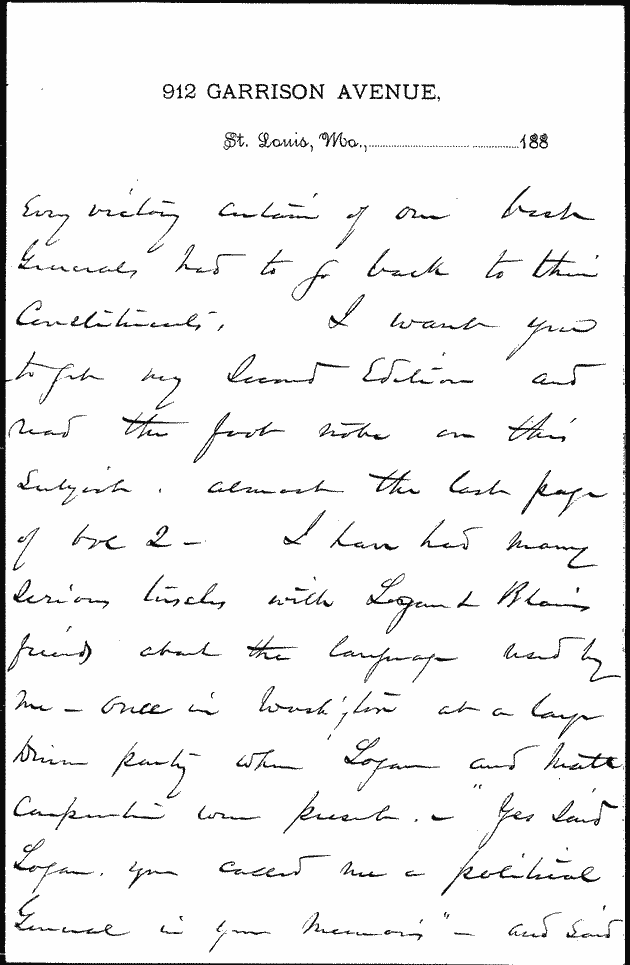 912 GARRISON AVENUE,
St. Louis, Mo., 188
Every victory certain of our best
Generals had to go back to their
Constituents. I want you
to get my Second Edition and
read the foot note on this
Subject. almost the last page
of vol 2 – I have had many
serious tussles with Logan & Blairs
friends about the language used by
me – once in Washington at a large
Dinner party when Logan and Matt
Carpenter were present. – "Yes said
Logan. you called me a political
General in your Memoirs" – and said